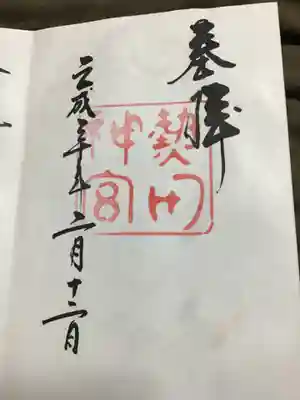 奉拝
熱田
神宮
平成三十年二月十二日